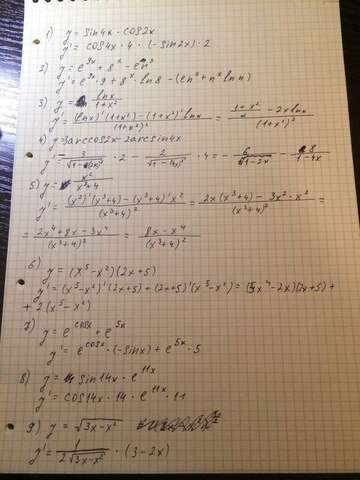 1) y = sin4x · cos2x
y' = cos4x · 4 · (-sin2x) · 2
2) y = e^{9x} + 8^x -
y' = e^{9x} · 9 + 8^x · ln8 - (en^x + n^x ln n)
3) y = lnx / (1+x²)
y' = ((lnx)'(1+x²) - (1+x²)' lnx) / (1+x²)² = ((1+x²)/x - 2x lnx) / (1+x²)²
4) y = 3arccos2x - 2arcsin4x
· 2 - · 4 = -
5) y = x² / (x³+4)
y' = ((x²)'(x³+4) - (x³+4)' x²) / (x³+4)² = (2x(x³+4) - 3x² · x²) / (x³+4)² =
= (2x⁴+8x-3x⁴) / (x³+4)² = (8x-x⁴) / (x³+4)²
6)
y = (x⁵-x²)(2x+5)
y' = (x⁵-x²)'(2x+5) + (2x+5)'(x⁵-x²) = (5x⁴-2x)(2x+5) +
+ 2(x⁵-x²)
7) y = e^{cosx} + e^{5x}
y' = e^{cosx} · (-sinx) + e^{5x} · 5
8) y = sin14x · e^{11x}
y' = cos14x · 14 · e^{11x} · 11
9) y = √(3x-x²)
y' = 1 / (2√(3x-x²)) · (3-2x)